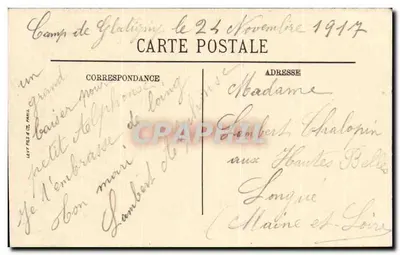 Camp de Glatigny le 24 Novembre 1917
CARTE POSTALE
CORRESPONDANCE
ADRESSE
un
grand
baiser pour
petit Alphonse
Je t'embrasse de loing
Ton mari
Lambert Alphonse
Madame
Lambert Chalopin
aux Hautes Belles
Longué
(Maine et-Loire)
LEVY FILS & CIE, PARIS
CPAPHIL